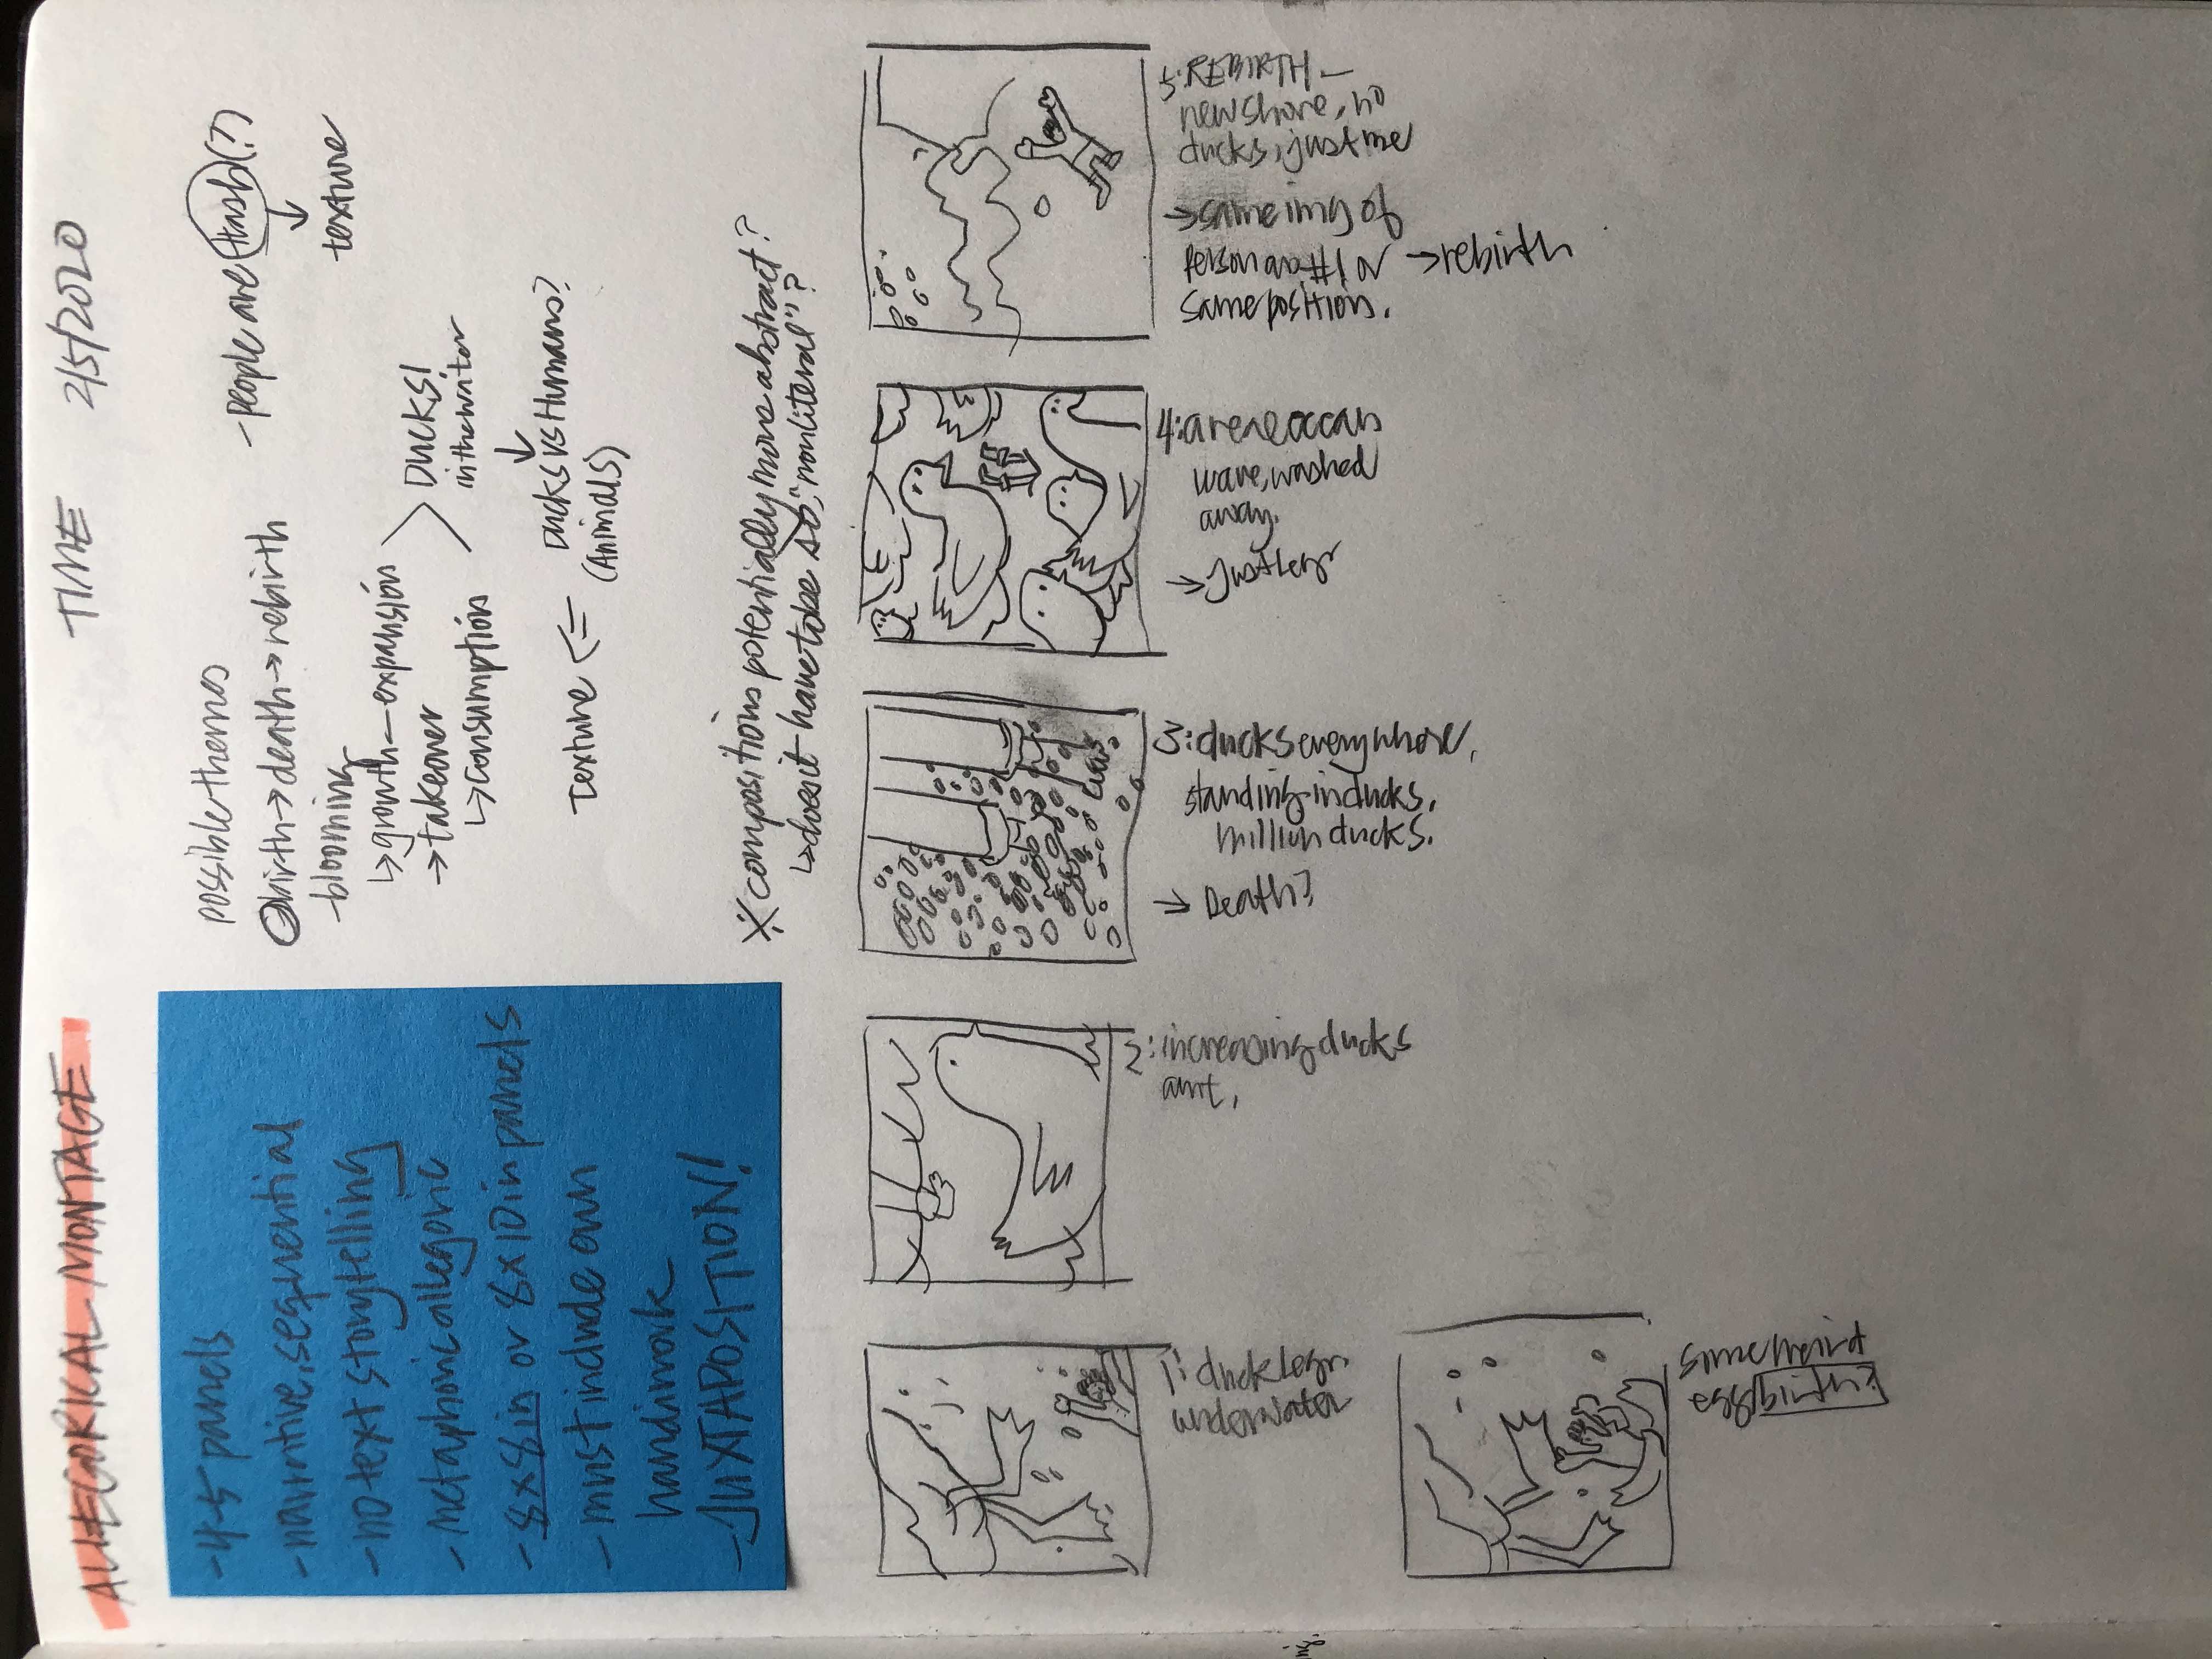 ALLEGORICAL MONTAGE
TIME 2/5/2020
-4-5 panels
-narrative, sequential
-no text storytelling
-metaphoric allegoric
-8x8in or 8x10in panels
-must include own
handiwork
-JUXTAPOSITION!
possible themes
birth→death→rebirth
-blooming
↳growth-expansion
→takeover
↳consumption
DUCKS!
in the water
↓
DUCKS VS Humans?
(Animals)
Texture <=
-people are trash(?)
↓
texture
※compositions potentially more abstract?
↳does it have to be so, "nonliteral"?
1: duck legs,
underwater
2: increasing ducks
amt,
3: ducks everywhere,
standing in ducks,
million ducks,
→ Death?
4: are ocean
wave, washed
away,
5: REBIRTH —
new shore, no
ducks, just me
→same img of
person as #1 w →rebirth
same position,
same thing w/
egg birth?